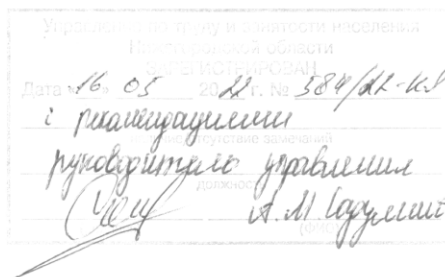 Управление по труду и занятости населения
Нижегородской области
ЗАРЕГИСТРИРОВАН
Дата «16» 05 2022 г. №
с рекомендациями
отсутствие замечаний
руководитель управления
должность
А.М.
(ФИО)